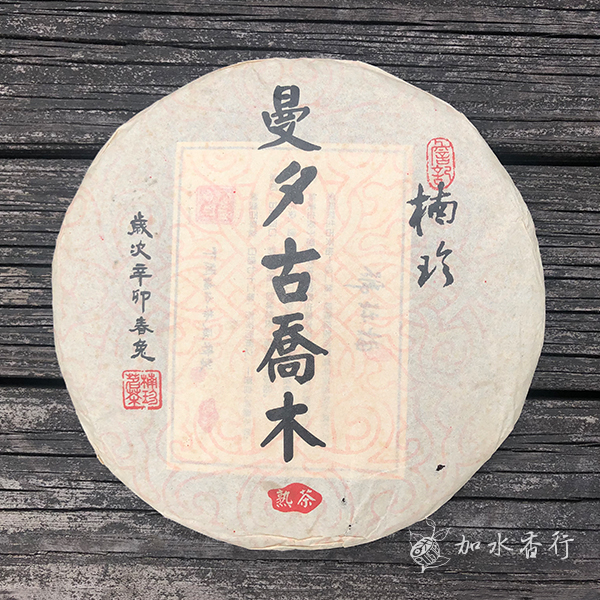 曼夕古喬木
楠珍
歲次辛卯春兔
楠珍
茗茶
熟茶
加水香行